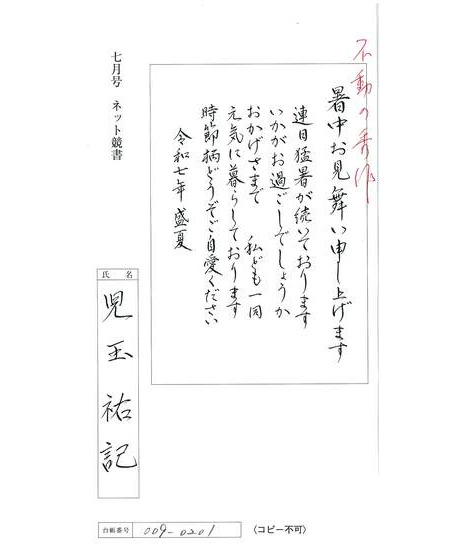 不動の秀作
暑中お見舞い申し上げます
連日猛暑が続いております
いかがお過ごしでしょうか
おかげさまで 私ども一同
元気に暮らしております
時節柄どうぞご自愛ください
令和七年盛夏
七月号 ネット競書
氏名
児玉祐記
台帳番号 009-0201
（コピー不可）